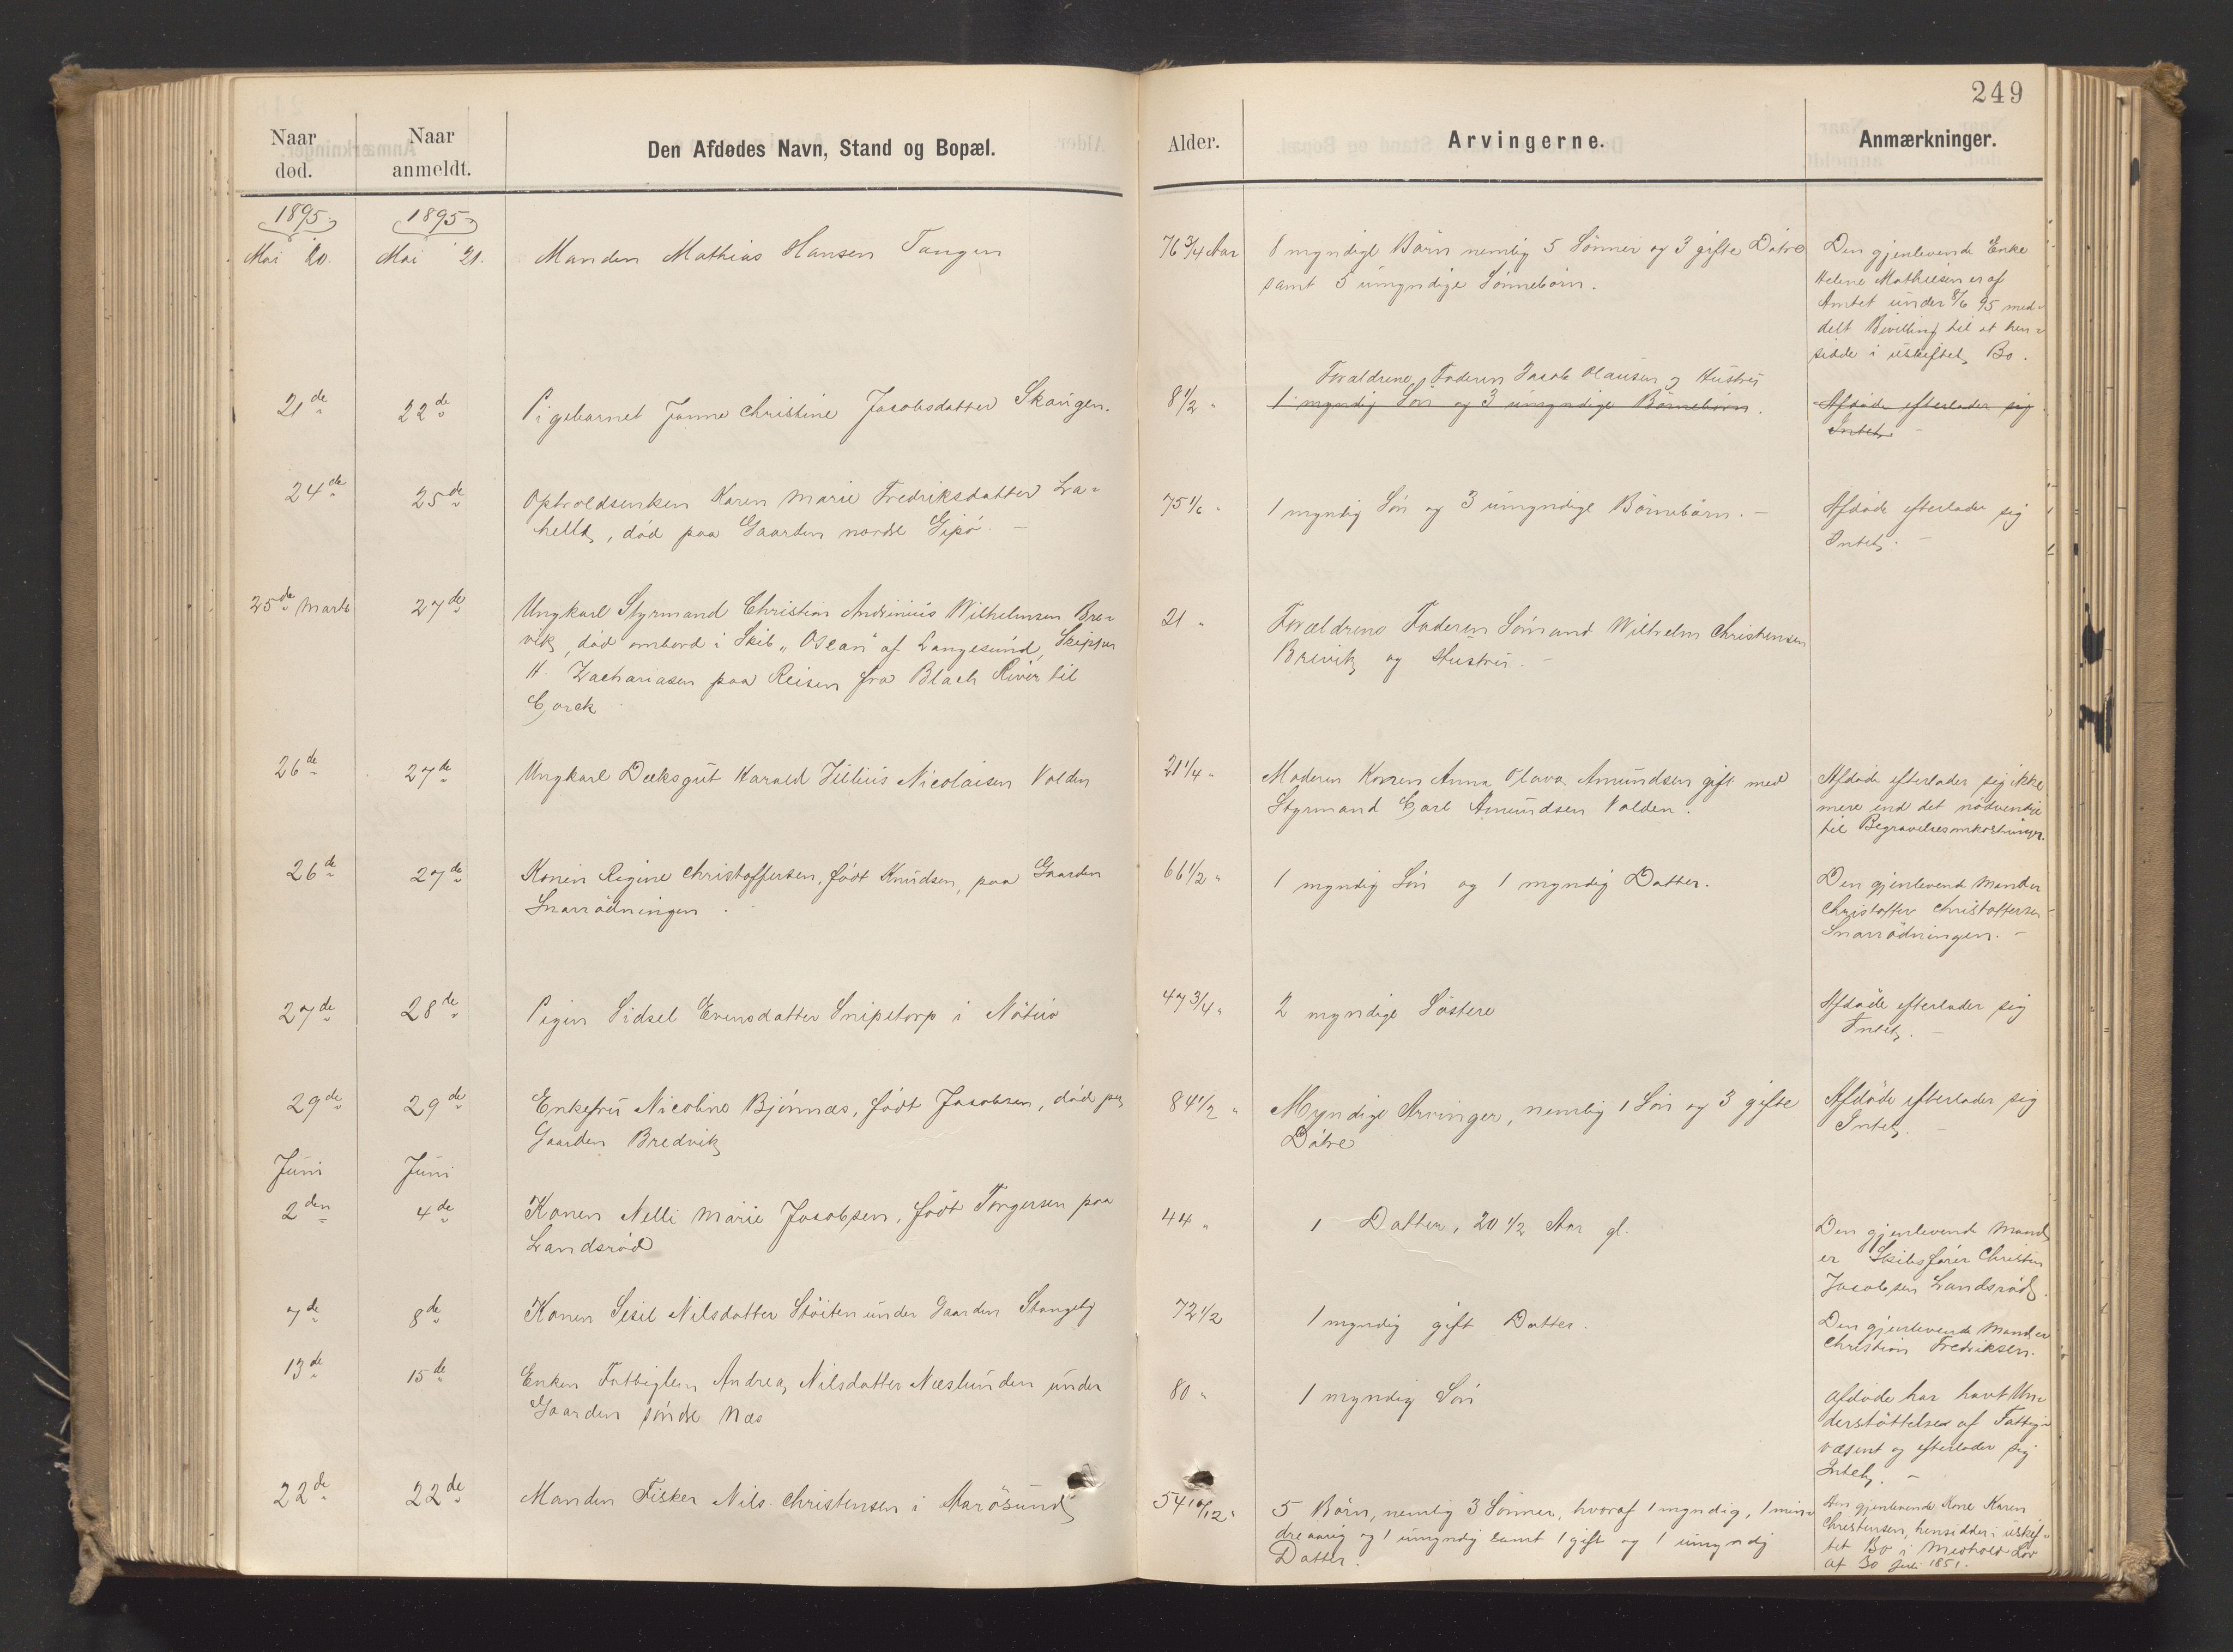 249
Naar død.
Naar anmeldt.
Den Afdødes Navn, Stand og Bopæl.
Alder.
Arvingerne.
Anmærkninger.
1895
1895
Mai 20.
Mai 21.
Manden Mathias Hansen Tangen
76 3/4 Aar
8 myndige Børn nemlig 5 Sønner og 3 gifte Døtre
samt 5 umyndige Sønnebørn.
Den gjenlevende Enke
Helene Mathiesen er af
Amtet under 8/6 95 med-
delt Bevilling til at hen-
sidde i uskiftet Bo.
21de
22de
Pigebarnet Janne Christine Jacobsdatter Skaugen.
8 1/2 "
Forældrene, Faderen Jacob Olausen og Hustru
1 myndig Søn og 3 umyndige Børnebørn.
Afdøde efterlader sig
Intet
24de
25de
Opholdsenken Karen Marie Fredriksdatter La-
helle, død paa Gaarden nordre Gipø. –
75 1/6 "
1 myndig Søn og 3 umyndige Børnebørn. –
Afdøde efterlader sig
Intet. –
25de Marts
27de
Ungkarl Styrmand Christian Andrinius Wilhelmsen Bre-
vik, død ombord i Skib "Osean" af Langesund, Skipper
H. Zachariasen paa Reisen fra Black River til
Corck
21 "
Forældrene Faderen Sømand Wilhelm Christensen
Brevik og Hustru. –
26de
27de
Ungkarl Dæksgut Harald Julius Nicolaisen Volden
21 1/4 "
Moderen Karen Anna Olava Amundsen gift med
Styrmand Carl Amundsen Volden.
Afdøde efterlader sig ikke
mere end det nødvendige
til Begravelsesomkostninger.
26de
27de
Konen Regine Christoffersen, født Knudsen, paa Gaarden
Snarrødningen.
66 1/2 "
1 myndig Søn og 1 myndig Datter.
Den gjenlevende Mand er
Christoffer Christoffersen
Snarrødningen. –
27de
28de
Pigen Sidsel Evensdatter Snipetorp i Nøterø
47 3/4 "
2 myndige Søstere
Afdøde efterlader sig
Intet. –
29de
29de
Enkefru Nicoline Bjønnæs, født Jacobsen, død paa
Gaarden Bredvik
84 1/2 "
Myndige Arvinger, nemlig 1 Søn og 3 gifte
Døtre
Afdøde efterlader sig
Intet. –
Juni
Juni
2den
4de
Konen Nelli Marie Jacobsen, født Torgersen paa
Landsrød
44 "
1 Datter, 20 1/2 Aar gl.
Den gjenlevende Mand
er Skibsfører Christian
Jacobsen Landsrød.
7de
8de
Konen Sisil Nilsdatter Støiten under Gaarden Stangeby
72 1/2
1 myndig gift Datter.
Den gjenlevende Mand er
Christian Fredriksen.
13de
15de
Enken Fattiglem Andrea Nilsdatter Næslunden under
Gaarden søndre Næs
80 "
1 myndig Søn
Afdøde har havt Un-
derstøttelse af Fattig-
væsent og efterlader sig
Intet. –
22de
22de
Manden Fisker Nils Christensen i Aarøsund
54 10/12 "
5 Børn, nemlig 3 Sønner, hvoraf 1 myndig, 1 min-
dreaarig og 1 umyndig samt 1 gift og 1 umyndig
Datter.
Den gjenlevende Kone Karen
Christensen, hensidder i uskif-
tet Bo i Medhold Lov
af 30 Juli 1851.